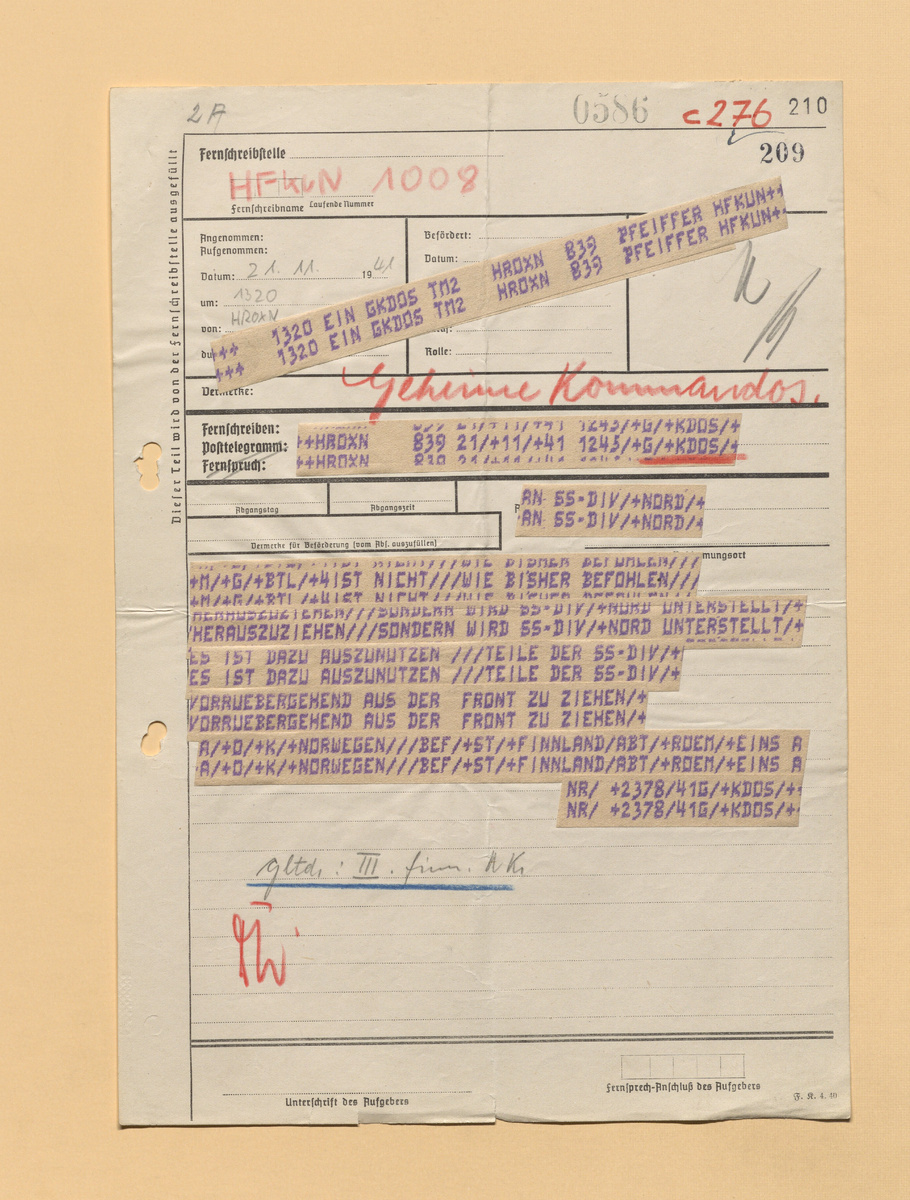 2A
0586 c276 210
209
Fernschreibstelle
HFKUN 1008
Fernschreibname Laufende Nummer
Dieser Teil wird von der Fernschreibstelle ausgefüllt
Angenommen:
Aufgenommen:
Datum: 21. 11. 1941
um: 1320
von: HROXN
Befördert:
Datum:
Rolle:
+++ 1320 EIN GKDOS TM2 HROXN 839 PFEIFFER HFKUN++
+++ 1320 EIN GKDOS TM2 HROXN 839 PFEIFFER HFKUN++
Vermerke: Geheime Kommandos.
Fernschreiben:
Posttelegramm:
Fernspruch:
++HROXN 839 21/+11/+41 1245/+G/+KDOS/+
++HROXN 839 21/+11/+41 1245/+G/+KDOS/+
Abgangstag Abgangszeit
AN SS-DIV/+NORD/+
AN SS-DIV/+NORD/+
Vermerke für Beförderung (vom Abs. auszufüllen)
mmungsort
+M/+G/+BTL/+4IST NICHT///WIE BISHER BEFOHLEN///
+M/+G/+BTL/+4IST NICHT///WIE BISHER BEFOHLEN///
HERAUSZUZIEHEN///SONDERN WIRD SS-DIV/+NORD UNTERSTELLT/+
HERAUSZUZIEHEN///SONDERN WIRD SS-DIV/+NORD UNTERSTELLT/+
ES IST DAZU AUSZUNUTZEN ///TEILE DER SS-DIV/+
ES IST DAZU AUSZUNUTZEN ///TEILE DER SS-DIV/+
VORRUEBERGEHEND AUS DER FRONT ZU ZIEHEN/+
VORRUEBERGEHEND AUS DER FRONT ZU ZIEHEN/+
A/+O/+K/+NORWEGEN///BEF/+ST/+FINNLAND/ABT/+ROEM/+EINS A
A/+O/+K/+NORWEGEN///BEF/+ST/+FINNLAND/ABT/+ROEM/+EINS A
NR/ +2378/41G/+KDOS/++
NR/ +2378/41G/+KDOS/++
gltd.: III. finn. AK.
Unterschrift des Aufgebers
Fernsprech-Anschluß des Aufgebers
F. K. 4. 40